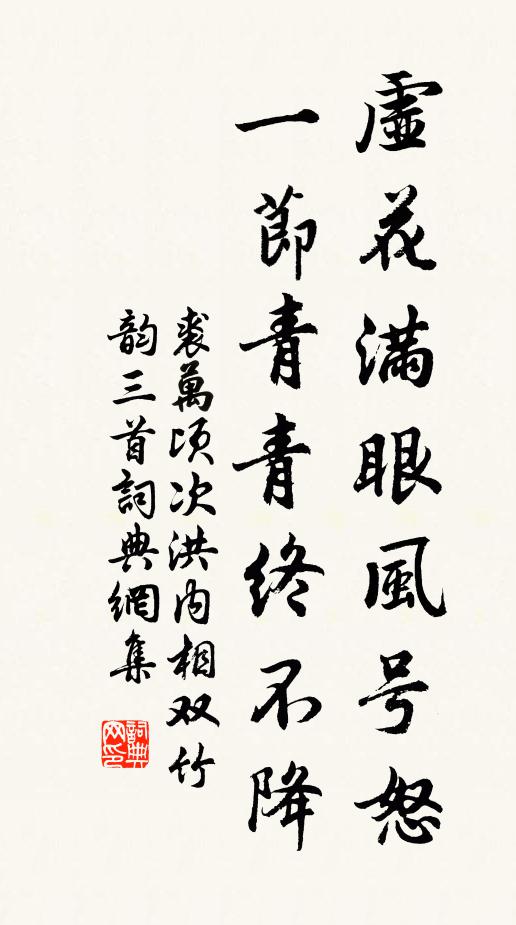 虛花滿眼風号怒
一節青青終不降
裘萬頃次洪内相双竹
韵三首詞典網集
詞典
网印